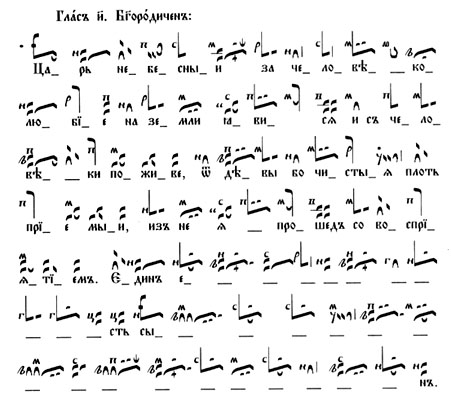 Гла́съ и҃. Бг҃оро́диченъ:
Ца_ рь не_ бе_ сны_ и за че_ ло_ вѣ_ _ ко_
лю_ бі_ е на зе_ мли ꙗ_ ви_ сѧ и съ че_ ло_
вѣ_ _ ки по_ жи_ ве, ѿ дѣ_ вы бо чи_ сты_ ѧ плоть
прїе_ мы_ и, изъ не_ ѧ _ про_ шедъ со во_ спрї_
ѧ_ тї_ емъ. Є_ динъ е_ _ _ _ _ _
_ _ _ сть сы_ _ _ _ _ _
_ _ _ _ _ _ _ _ нъ.